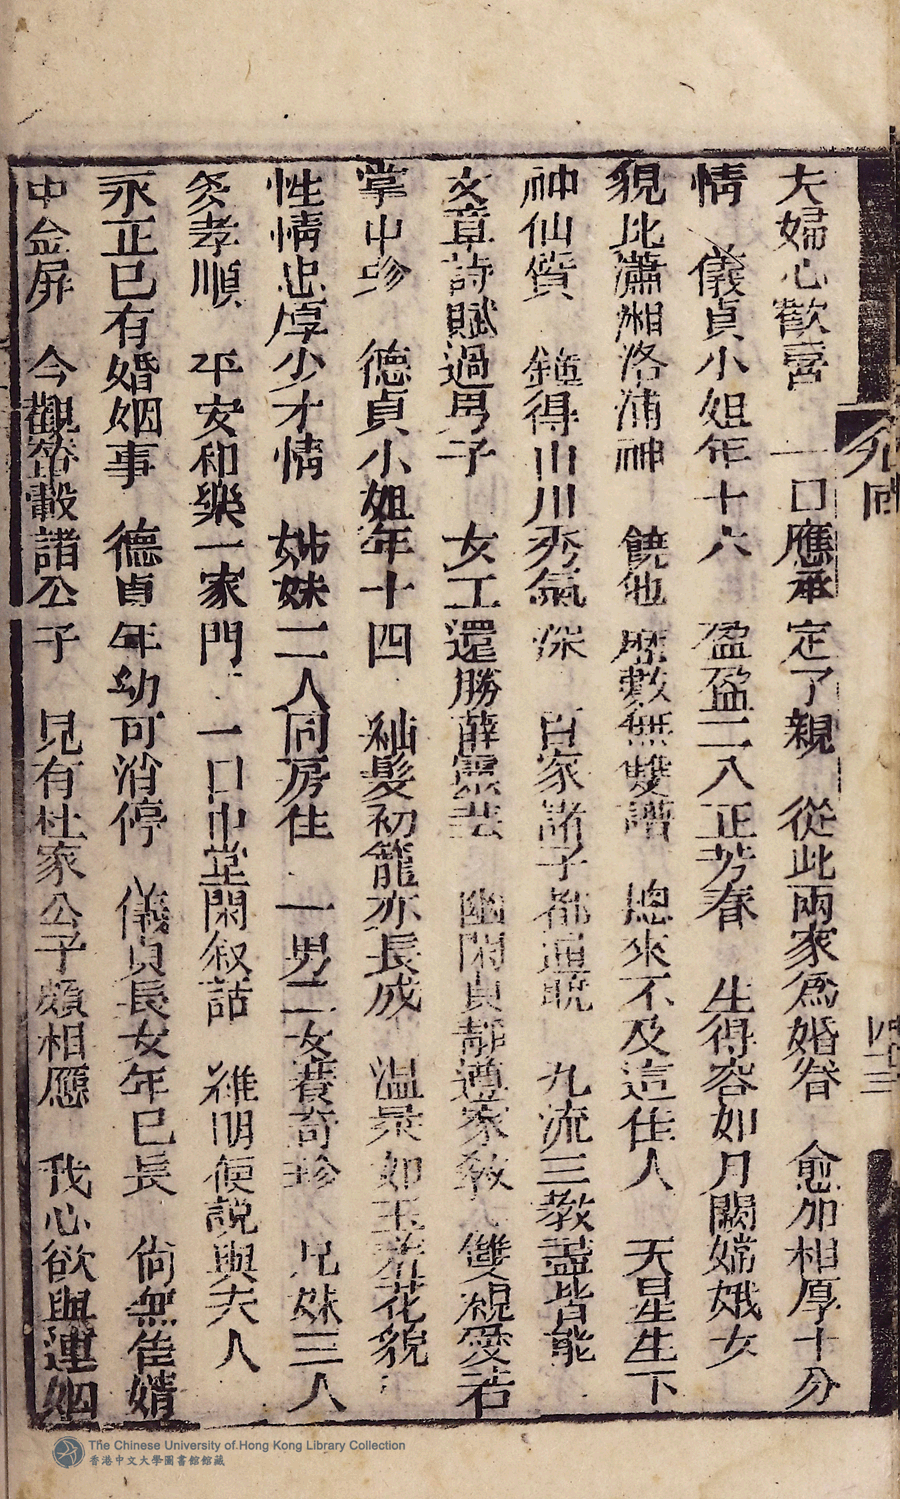 夫婦心歡喜　一口應承定了親　從此兩家爲婚眷　愈加相厚十分
情　儀貞小姐年十六　盈盈二八正芳春　生得容如月闕嫦娥女
貌比瀟湘洛浦神　饒他歷數無雙譜　總來不及這佳人　天星生下
神仙質　鍾得山川秀氣深　百家諸子都通曉　九流三教盡皆能
文章詩賦過男子　女工還勝薛靈芸　幽閑貞靜遵家教　雙親愛若
掌中珍　德貞小姐年十四　紺髮初籠亦長成　溫柔如玉羞花貌
性情忠厚少才情　姊妹二人同房住　一男二女養奇珍　兄妹三人
多孝順　平安和樂一家門　一口中堂閑叙話　維明便說與夫人
永正已有婚姻事　德貞年幼可消停　儀貞長女年已長　尙無隹婿
中金屏　今觀輦轂諸公子　見有杜家公子頗相應　我心欲與連姻
介囘
四三
The Chinese University of Hong Kong Library Collection
香港中文大學圖書館館藏